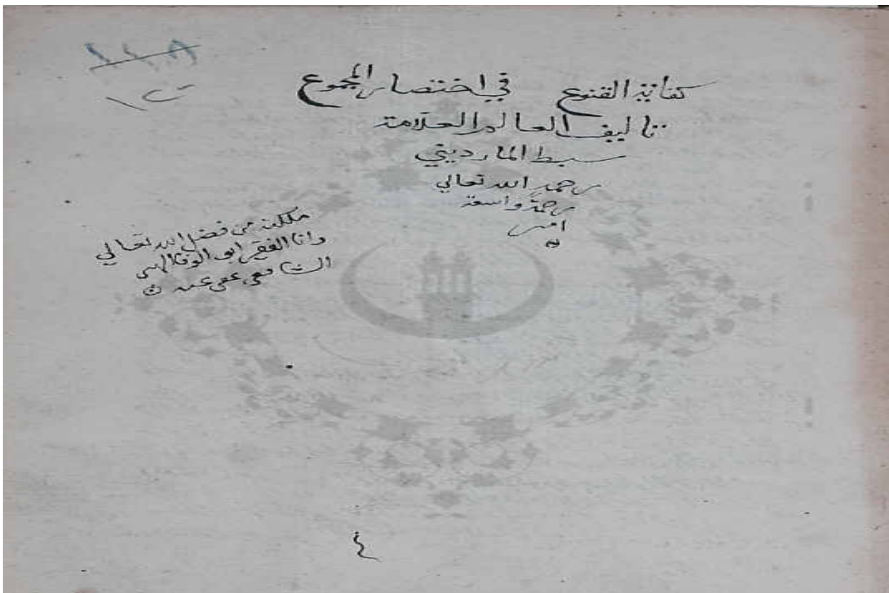 ٨١٨
كفاية القنوع في اختصار المجموع
تاليف العالم العلامة
سبط المارديني
رحمه الله تعالي
رحمة واسعة
امين
ملكه من فضل الله تعالي
وانا الفقير ابو الوفا
الشافعي عفي عنه
٤